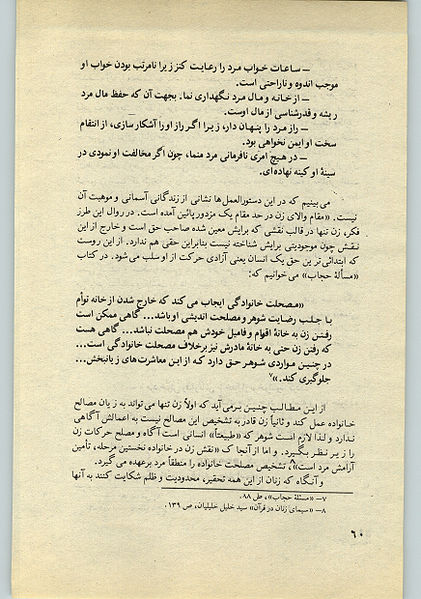 — ساعات خواب مرد را رعایت کنز زیرا نامرتب بودن خواب او
موجب اندوه و ناراحتی است.
— از خانه و مال مرد نگهداری نما. بجهت آن که حفظ مال مرد
ریشه و قدرشناسی از مال اوست.
— راز مرد را پنهان دار، زیرا اگر راز او را آشکار سازی، از انتقام
سخت او ایمن نخواهی بود.
— در هیچ امری نافرمانی مرد منما، چون اگر مخالفت او نمودی در
سینهٔ او کینه نهاده‌ای.
می‌بینیم که در این دستورالعمل‌ها نشانی از زندگانی آسمانی و موهبت آن
نیست. «مقام والای زن در حد مقام یک مزدور پائین آمده است. در روال این طرز
فکر، زن تنها در قالب نقشی که برایش معین شده صاحب حق است و خارج از این
نقش چون موجودیتی برایش شناخته نیست بنابراین حقی هم ندارد. از این روست
که ابتدائی‌ترین حق یک انسان یعنی آزادی حرکت از او سلب می‌شود. در کتاب
«مسألهٔ حجاب» می‌خوانیم که:
«مصحلت خانوادگی ایجاب می کند که خارج شدن از خانه توأم
با جلب رضایت شوهر و مصلحت اندیشی او باشد... گاهی ممکن است
رفتن زن به خانهٔ اقوام و فامیل خودش هم مصلحت نباشد... گاهی هست
که رفتن زن حتی به خانهٔ مادرش نیز برخلاف مصلحت خانوادگی است...
در چنین مواردی شوهر حق دارد که از این معاشرت‌های زیانبخش...
جلوگیری کند.»۷
از این مطالب چنین برمی‌آید که اولاً زن تنها می‌تواند به زیان مصالح
خانواده عمل کند و ثانیاً زن قادر به تشخیص این مصالح نیست به اعمالش آگاهی
ندارد و لذا لازم است شوهر که «طبیعتاً» انسانی است آگاه و مصلح حرکات زن
را زیر نظر بگیرد. و اما از آنجا که «نقش زن در خانواده نخستین مرحله، تأمین
آرامش مرد است»۸، تشخیص مصلحت خانواده را منطقاً مرد برعهده می گیرد.
و آنگاه که زنان از این همه تحقیر، محدودیت و ظلم شکایت کنند به آنها
۷— «مسئلهٔ حجاب»، ص ۸۸.
۸— «سیمای زنان در قرآن» سید خلیل خلیلیان، ص ۱۳۹.
۶۰